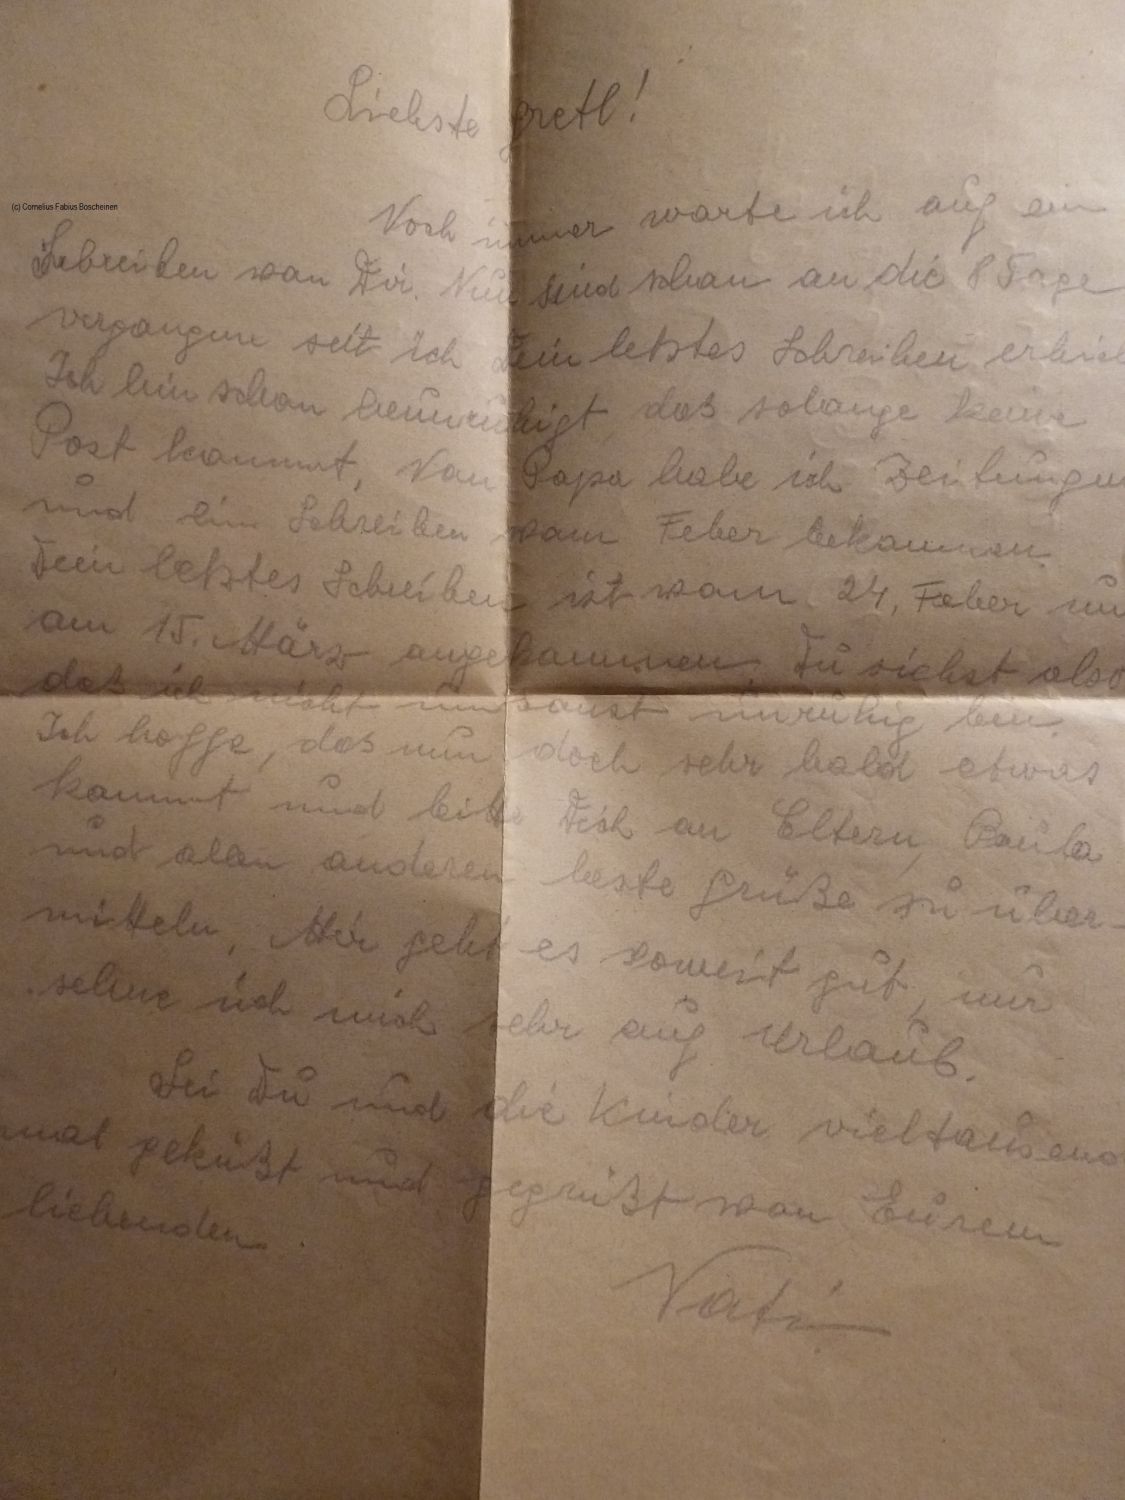 Liebste Gretl!
(c) Cornelius Fabius Boscheinen
Noch immer warte ich auf ein
Schreiben von Dir. Nun sind schon an die 8 Tage
vergangen seit ich Dein letztes Schreiben erhiel
Ich bin schon beunruhigt das solange keine
Post kommt, Von Papa habe ich Zeitungen
und ein Schreiben vom Feber bekommen.
Dein letztes Schreiben ist vom 24. Feber un
am 15. März angekommen. Du siehst also
daß ich nicht umsonst unruhig bin.
Ich hoffe, das nun doch sehr bald etwas
kommt und bitte Dich an Eltern, Paula
und allen anderen beste Grüße zu über-
mitteln. Mir geht es soweit gut, nur
sehne ich mich sehr auf Urlaub.
Sei Du und die Kinder vieltausend
mal geküßt und gegrüßt von Eurem
liebenden
Vati